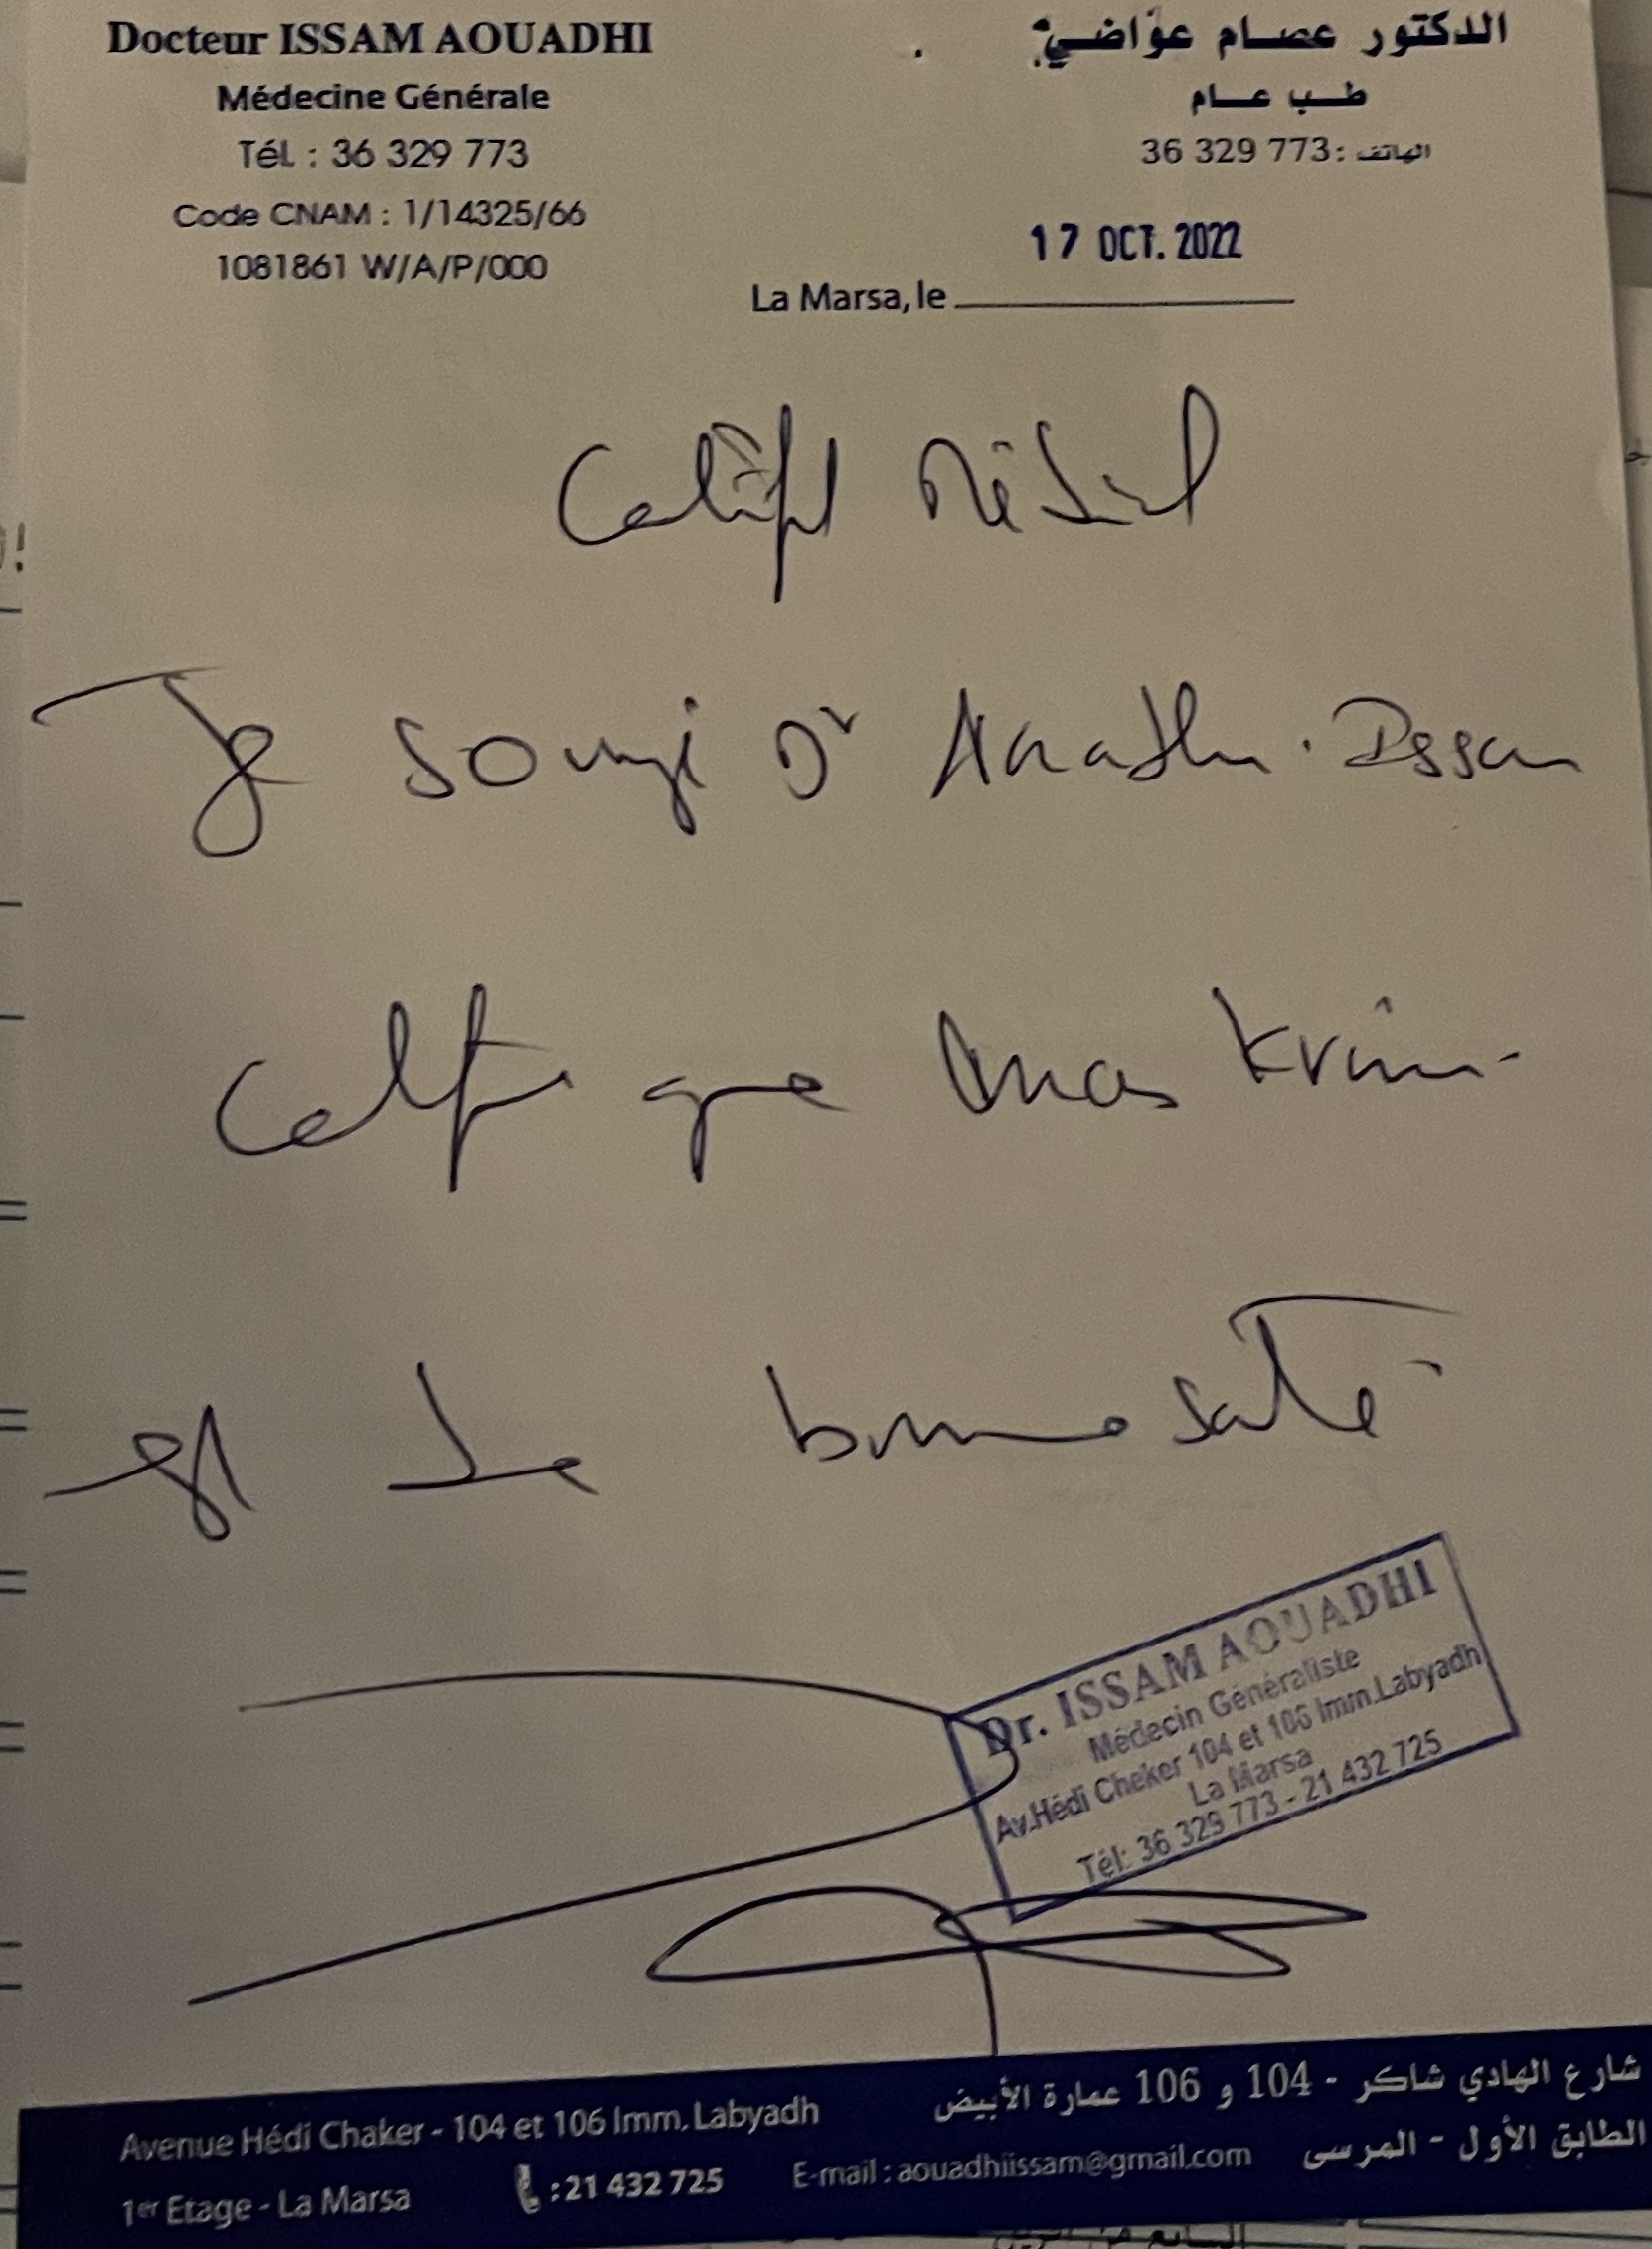 Docteur ISSAM AOUADHI
Médecine Générale
Tél. : 36 329 773
Code CNAM : 1/14325/66
1081861 W/A/P/000
الدكتور عصام عوّاضي
طب عام
الهاتف : 36 329 773
17 OCT. 2022
La Marsa, le
Certificat Médical
Je soussigné Dr Aouadhi Issam
certifie que Anas Krimi
est de bonne santé
Dr. ISSAM AOUADHI
Médecin Généraliste
Av.Hédi Cheker 104 et 106 Imm.Labyadh
La Marsa
Tél: 36 329 773 - 21 432 725
Avenue Hédi Chaker - 104 et 106 Imm. Labyadh
1er Etage - La Marsa
: 21 432 725
E-mail : aouadhiissam@gmail.com
شارع الهادي شاكر - 104 و 106 عمارة الأبيض
الطابق الأول - المرسى